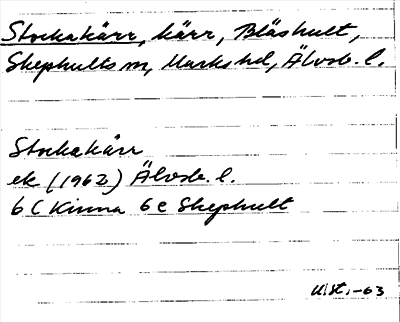 Stockakärr, kärr, Blåshult,
Skephults sn, Marks hd, Älvsb. l.
Stockakärr
ek (1962) Älvsb. l.
6 C Kinna 6 e Skephult
-63